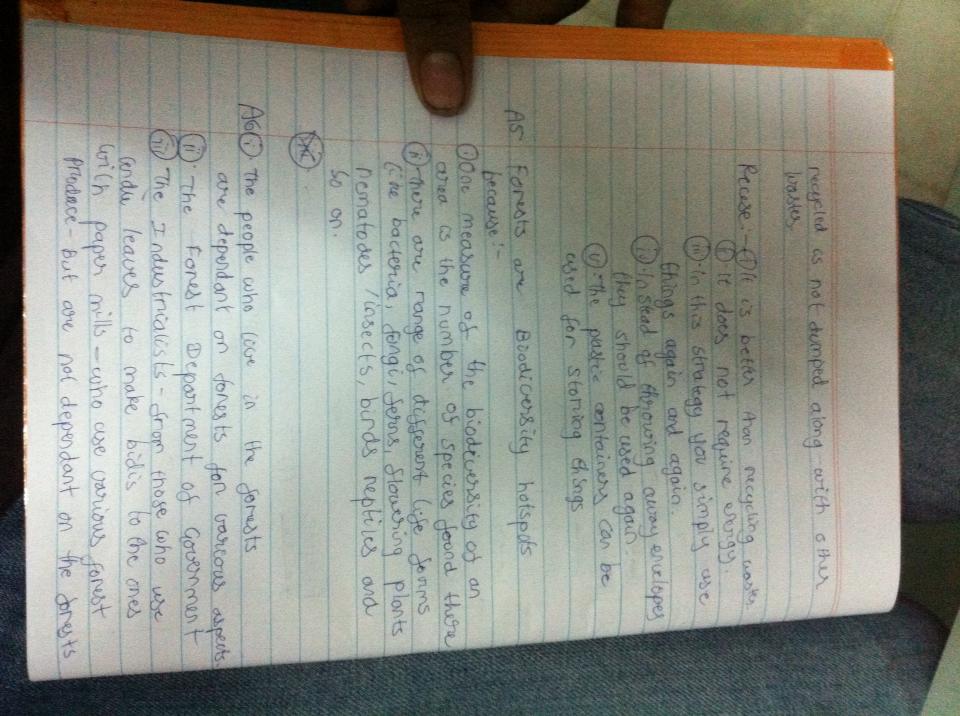 recycled is not dumped along with other
wastes
Recuse:- (i) It is better than recycling waste.
(ii) It does not require energy.
(iii) In this strategy you simply use
things again and again.
(iv) Instead of throwing away envelopes
they should be used again.
(v) The pastic containers can be
used for storing things
A5 Forests are Biodiversity hotspots
because:-
(i) One measure of the biodiversity of an
area is the number of species found there
(ii) There are range of different life forms
like bacteria, fungi, ferns, flowering plants
nematodes, insects, birds reptics and
so on.
A6 (i). The people who live in the forests
are dependant on forests for various aspects.
(ii). The Forest Department of Government
(iii) The Industrialists - from those who use
tendu leaves to make bidis to the ones
with paper mills - who use various forest
produce - but are not dependant on the forests